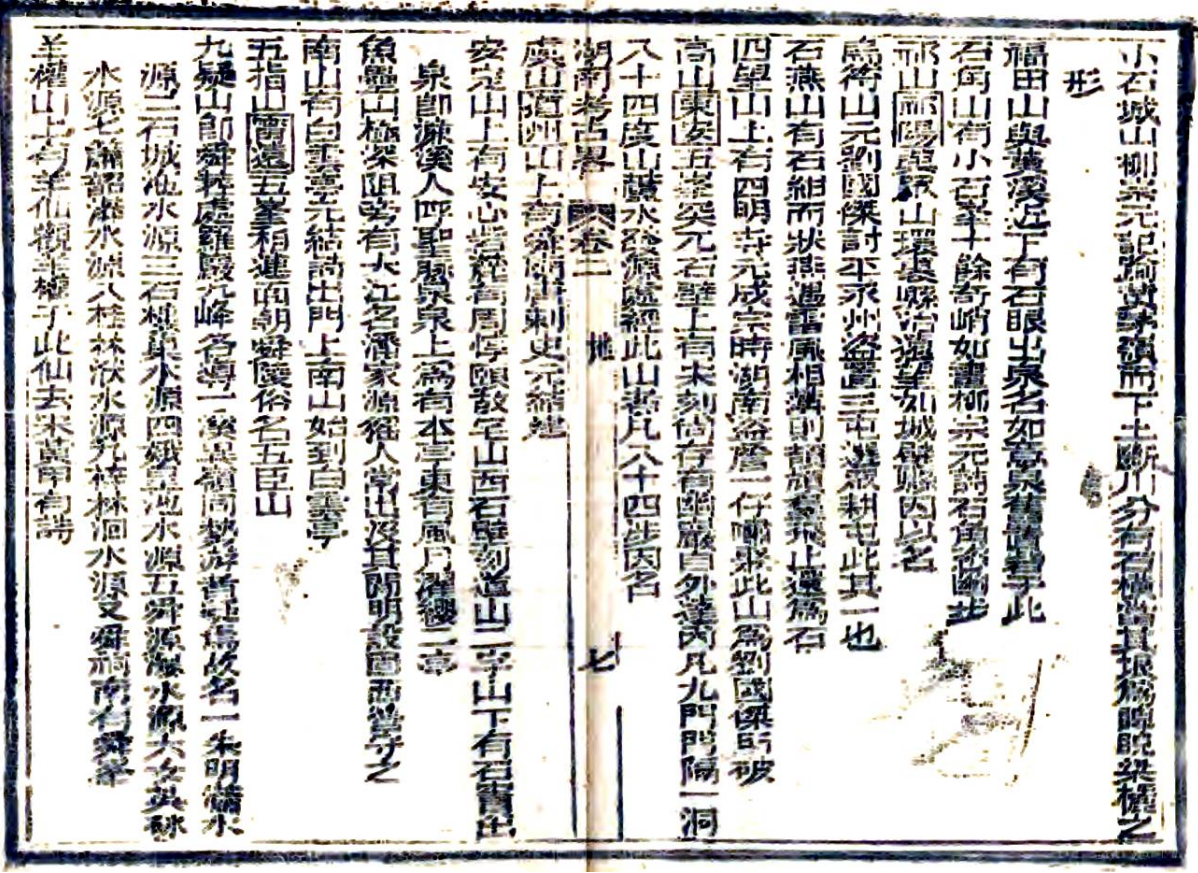 小石城山柳宗元記踰黃茅嶺而下土斷川分有石橫當其垠為睥睨梁欐之
形
福田山與黃溪近下有石眼出泉名如意泉舊置寺于此
石角山有小石峯十餘奇峭如畫柳宗元詩石角恣幽步
祁山祁陽山環裹縣治遠望如城祁縣因以名
烏符山元劉國傑討平永州盜置三屯選眾耕屯此其一也
石燕山有石紺而狀燕遇雷風相薄則頡頏羣飛止還為石
四望山上有四明寺元成宗時湖南盜詹一仔嘯聚此山為劉國傑所破
高山東安五峯突兀石壁上有宋刻尚存有幽巖自外達內凡九門門隔一洞
八十四度山水發源處經此山者凡八十四涉因名
湖南考古畧 卷二 地 七
虞山道州山上有舜廟唐刺史元結建
安定山上有安心寨麓有周惇頤故宅山西石壁刻道山二字山下有石竇出
泉即濂溪人呼聖脈泉泉上為有本亭東有風月濯纓二亭
魚鹽山極深阻旁有大江名潘家源猺人常出沒其間明設酉西營守之
南山有白雲亭元結詩出門上南山始到白雲亭
五指山寧遠五峯相連面朝舜陵俗名五臣山
九疑山即舜葬處羅巖九峰各導一溪異嶺同勢游者疑焉故名一朱明瀟水
源二石城沲水源三石樓巢水源四娥皇池水源五舜源瀑水源六女英砅
水源七蕭韶㴩水源八桂林洑水源九梓林洄水源又舜祠南有舜峯
羊權山上有羊仙觀羊權于此仙去宋黃甲有詩